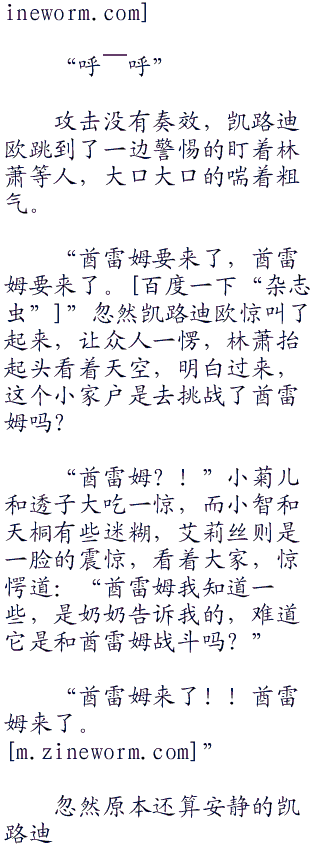 ineworm.com]
“呼——呼”
攻击没有奏效，凯路迪
欧跳到了一边警惕的盯着林
萧等人，大口大口的喘着粗
气。
“酋雷姆要来了，酋雷
姆要来了。[百度一下“杂志
虫”]”忽然凯路迪欧惊叫了
起来，让众人一愣，林萧抬
起头看着天空，明白过来，
这个小家户是去挑战了酋雷
姆吗？
“酋雷姆？！”小菊儿
和透子大吃一惊，而小智和
天桐有些迷糊，艾莉丝则是
一脸的震惊，看着大家，惊
愕道：“酋雷姆我知道一
些，是奶奶告诉我的，难道
它是和酋雷姆战斗吗？”
“酋雷姆来了！！酋雷
姆来了。
[m.zineworm.com]”
忽然原本还算安静的凯
路迪